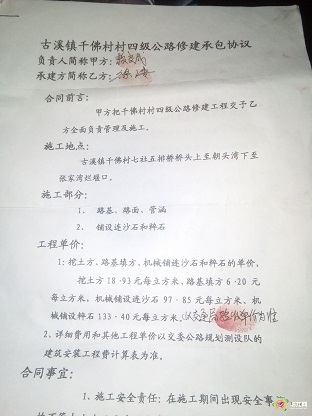 古溪镇千佛村村四级公路修建承包协议
负责人简称甲方:
承建方简称乙方:
合同前言:
甲方把千佛村村四级公路修建工程交予乙
方全面负责管理及施工。
施工地点:
古溪镇千佛村七社五排桥桥头上至朝头湾下至
张家湾烂堰口。
施工部分:
1、 路基、路面、管涵
2、 铺设连沙石和粹石
工程单价:
1:挖土方、路基填方、机械铺设连沙石和粹石的单价,
挖土方 18·93 元每立方米、路基填方 6·20 元
每立方米、机械铺设连沙石 97·85 元每立方米、机
械铺设粹石 133·40 元每立方米、以交通局
2、详细费用和其他工程单价以交委公路规划测设队的
建筑安装工程费计算表为准。
合同事宜:
1、施工安全责任:在施工期间出现安全事